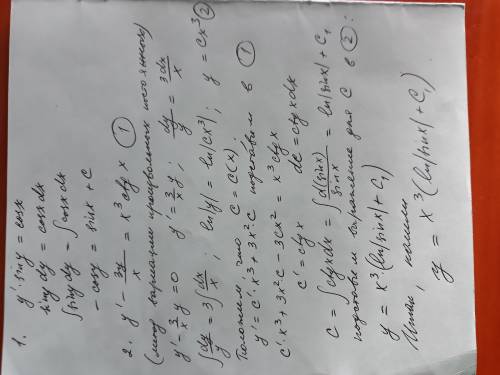 1. y'·sin y = cos x
sin y dy = cos x dx
∫ sin y dy = ∫ cos x dx
- cos y = sin x + C
2. y' - 3y/x = x³ ctg x ①
(метод вариации произвольных постоянных)
y' - 3/x y = 0 y' = 3/x y; dy/y = 3dx/x
∫ dy/y = 3∫ dx/x; ln|y| = ln|Cx³|; y = Cx³ ②
Положим, что C = C(x):
y' = C'·x³ + 3x²·C подставим в ①
C'·x³ + 3x²C - 3Cx² = x³ ctg x
C' = ctg x dC = ctg x dx
C = ∫ ctg x dx = ∫ d(sin x)/sin x = ln|sin x| + C₁
подставим выражение для C в ②:
y = x³(ln|sin x| + C₁)
Итак, нашли
y = x³(ln|sin x| + C₁)